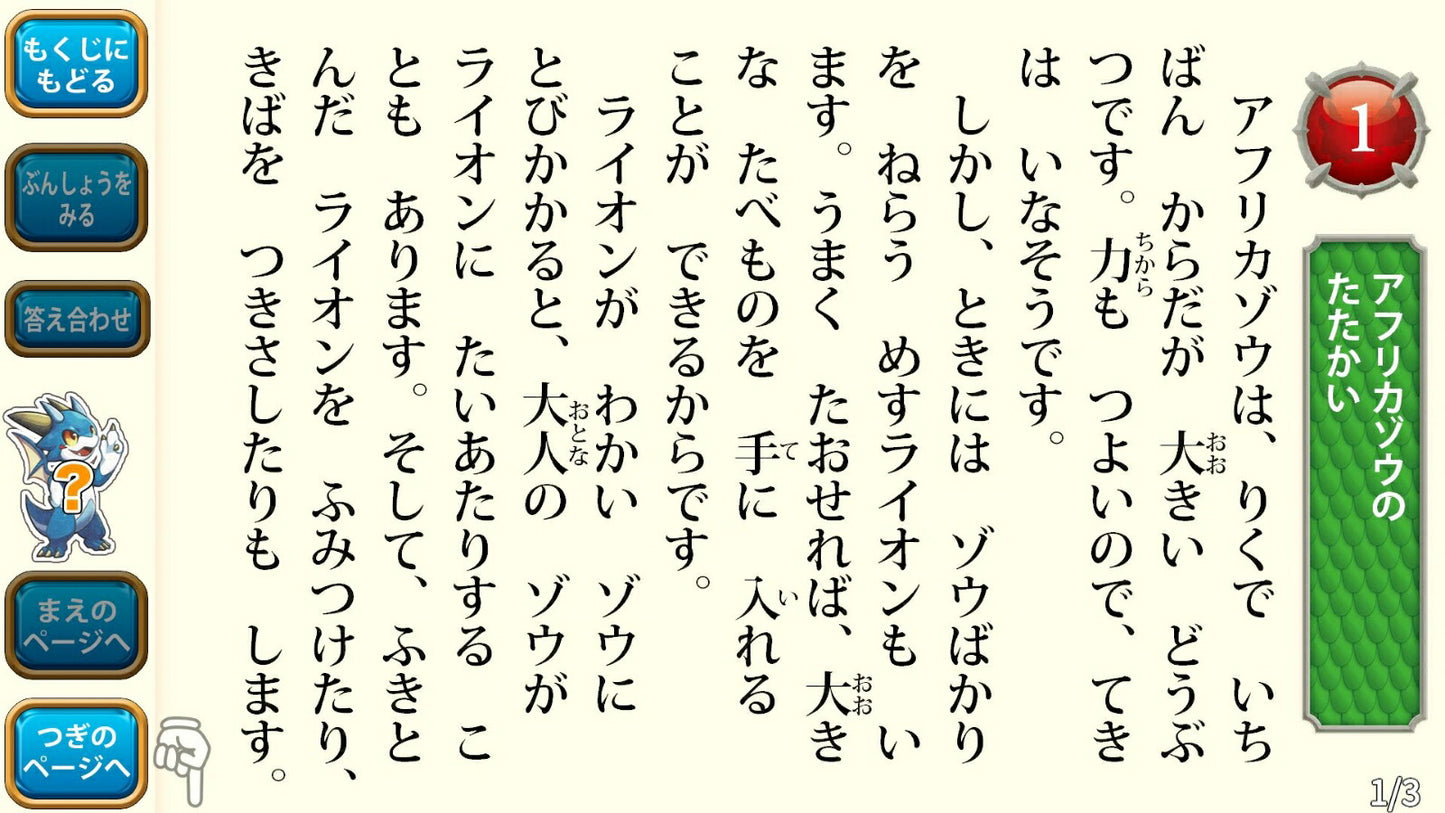 1
アフリカゾウの
たたかい
アフリカゾウは、りくで　いち
ばん　からだが　大きい　どうぶ
おお
つです。力も　つよいので、てき
ちから
は　いなそうです。
しかし、ときには　ゾウばかり
を　ねらう　めすライオンも　い
ます。うまく　たおせれば、大き
おお
な　たべものを　手に　入れる
て
い
ことが　できるからです。
ライオンが　わかい　ゾウに
とびかかると、大人の　ゾウが
おとな
ライオンに　たいあたりする　こ
とも　あります。そして、ふきと
んだ　ライオンを　ふみつけたり、
きばを　つきさしたりも　します。
1/3
もくじに
もどる
ぶんしょうを
みる
答え合わせ
?
まえの
ページへ
つぎの
ページへ